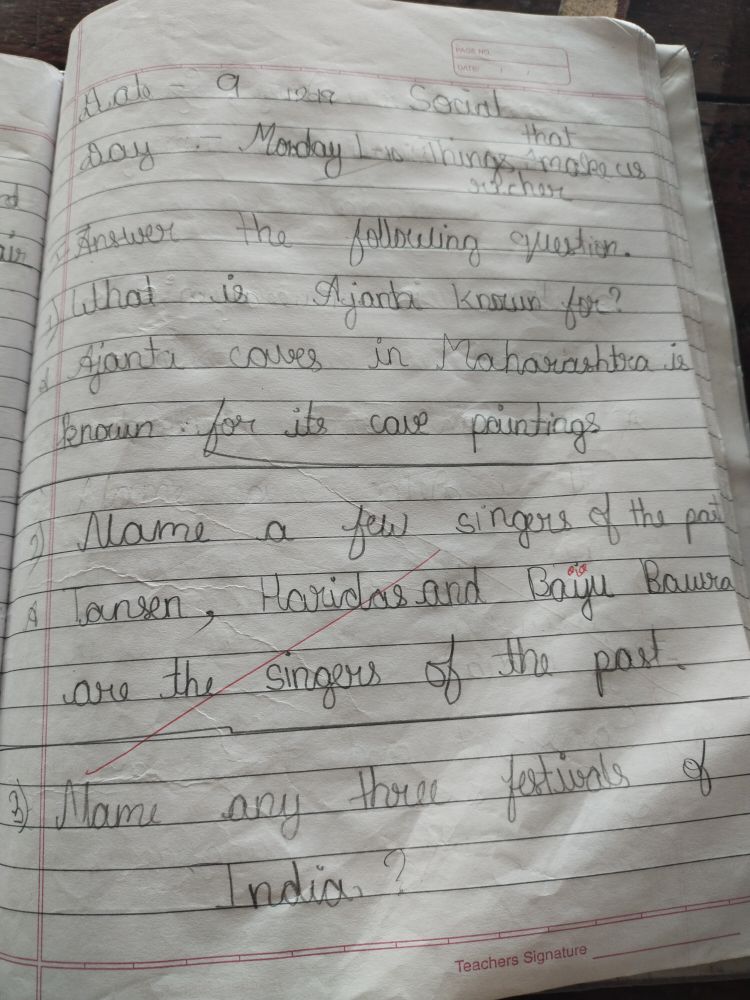 PAGE NO.
DATE: / /
Date - 9 12-19 Social
Day :- Monday L-10 Things that make us
richer
I Answer the following question.
1) What is Ajanta known for?
A Ajanta caves in Maharashtra is
known for its cave paintings
2) Name a few singers of the past
A Tansen, Haridas and Baiju Bawra
are the singers of the past.
3) Name any three festivals of
India?
Teachers Signature